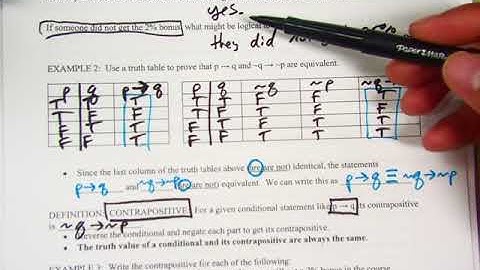 yes.
If someone did not get the 2% bonus, what might be logical
they did
EXAMPLE 2: Use a truth table to prove that p → q and ~q → ~p are equivalent.
p q p→q p q ~q ~p
T T T T T F F T
T F F T F T F F
F T T F T F T T
F F T F F T T T
• Since the last column of the truth tables above (are/are not) identical, the statements
p→q and ~q→~p (are/are not) equivalent. We can write this as p→q ≡ ~q→~p
DEFINITION: CONTRAPOSITIVE: For a given conditional statement like p → q, its contrapositive
is ~q → ~p
• Reverse the conditional and negate each part to get its contrapositive.
• The truth value of a conditional and its contrapositive are always the same.
EXAMPLE 3: Write the contrapositive for each of the following: